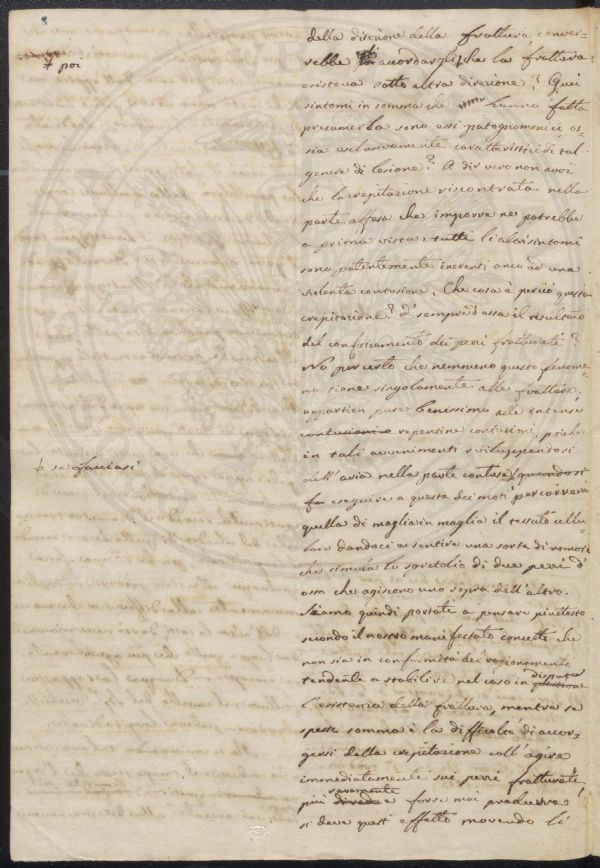 8
della direzione della frattura conver-
rebbe accordargli, che la frattura
esisteva sotto altra direzione? Quei
sintomi in somma che hanno fatta
presumerla sono essi patognomonici os-
sia esclusivamente caratteristici di tal
genere di lesione? A dir vero non avvi
che la crepitazione riscontrata nella
parte offesa che imporre ne potrebbe
a prima vista: tutti li altri sintomi
sono patentemente inerenti anco ad una
violenta contusione. Che cosa è perciò questa
crepitazione? È sempre d'essa il risultato
del confricamento dei pezzi fratturati?
No per certo che nemmeno questo fenome-
no tiene singolamente alle fratture,
appartien pure benissimo alle intense
contusioni e repentine contusioni, poiché
in tali avvenimenti sviluppandosi
dell'aria nella parte contusa, quandosi
eseguire a questa dei moti percorrerà
quella di maglia in maglia il tessuto cellu-
lare dandoci a sentire una sorta di romore
che simula lo di due pezzi d'
osso che agiscono uno sopra dell'altro.
Siamo quindi portati a pensare piuttosto
secondo il nostro manifestato concetto che
non sia in conformità del ragionamento
tendente a stabilire nel caso in disputa
questione
l'esistenza della frattura, mentre se
spesse somma è la difficoltà di accor-
gersi della crepitazione coll'agire
immediatamente sui pezzi fratturati,
più raramente e forse mai produrre
si deve questi effetto movendo li
+ poi
+ se facciasi